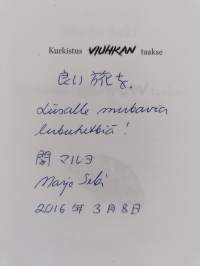 Kurkistus VIUHKAN taakse
良い旅を。
Liisalle mukavia
lukuhetkiä!
関 マルヨ
Marjo Seki
2016年 3月8日